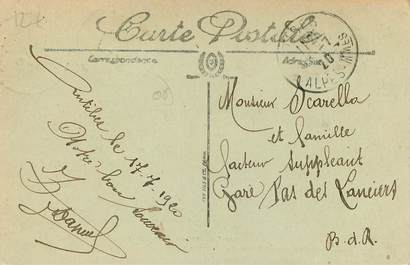 Carte Postale
Correspondance
Adresse
ALPES
Antibes le 17-7-1920
Notre bon Souvenir
Monsieur Scarella
et famille
facteur Suppléant
Gare Pas des Lanciers
B.d.R.